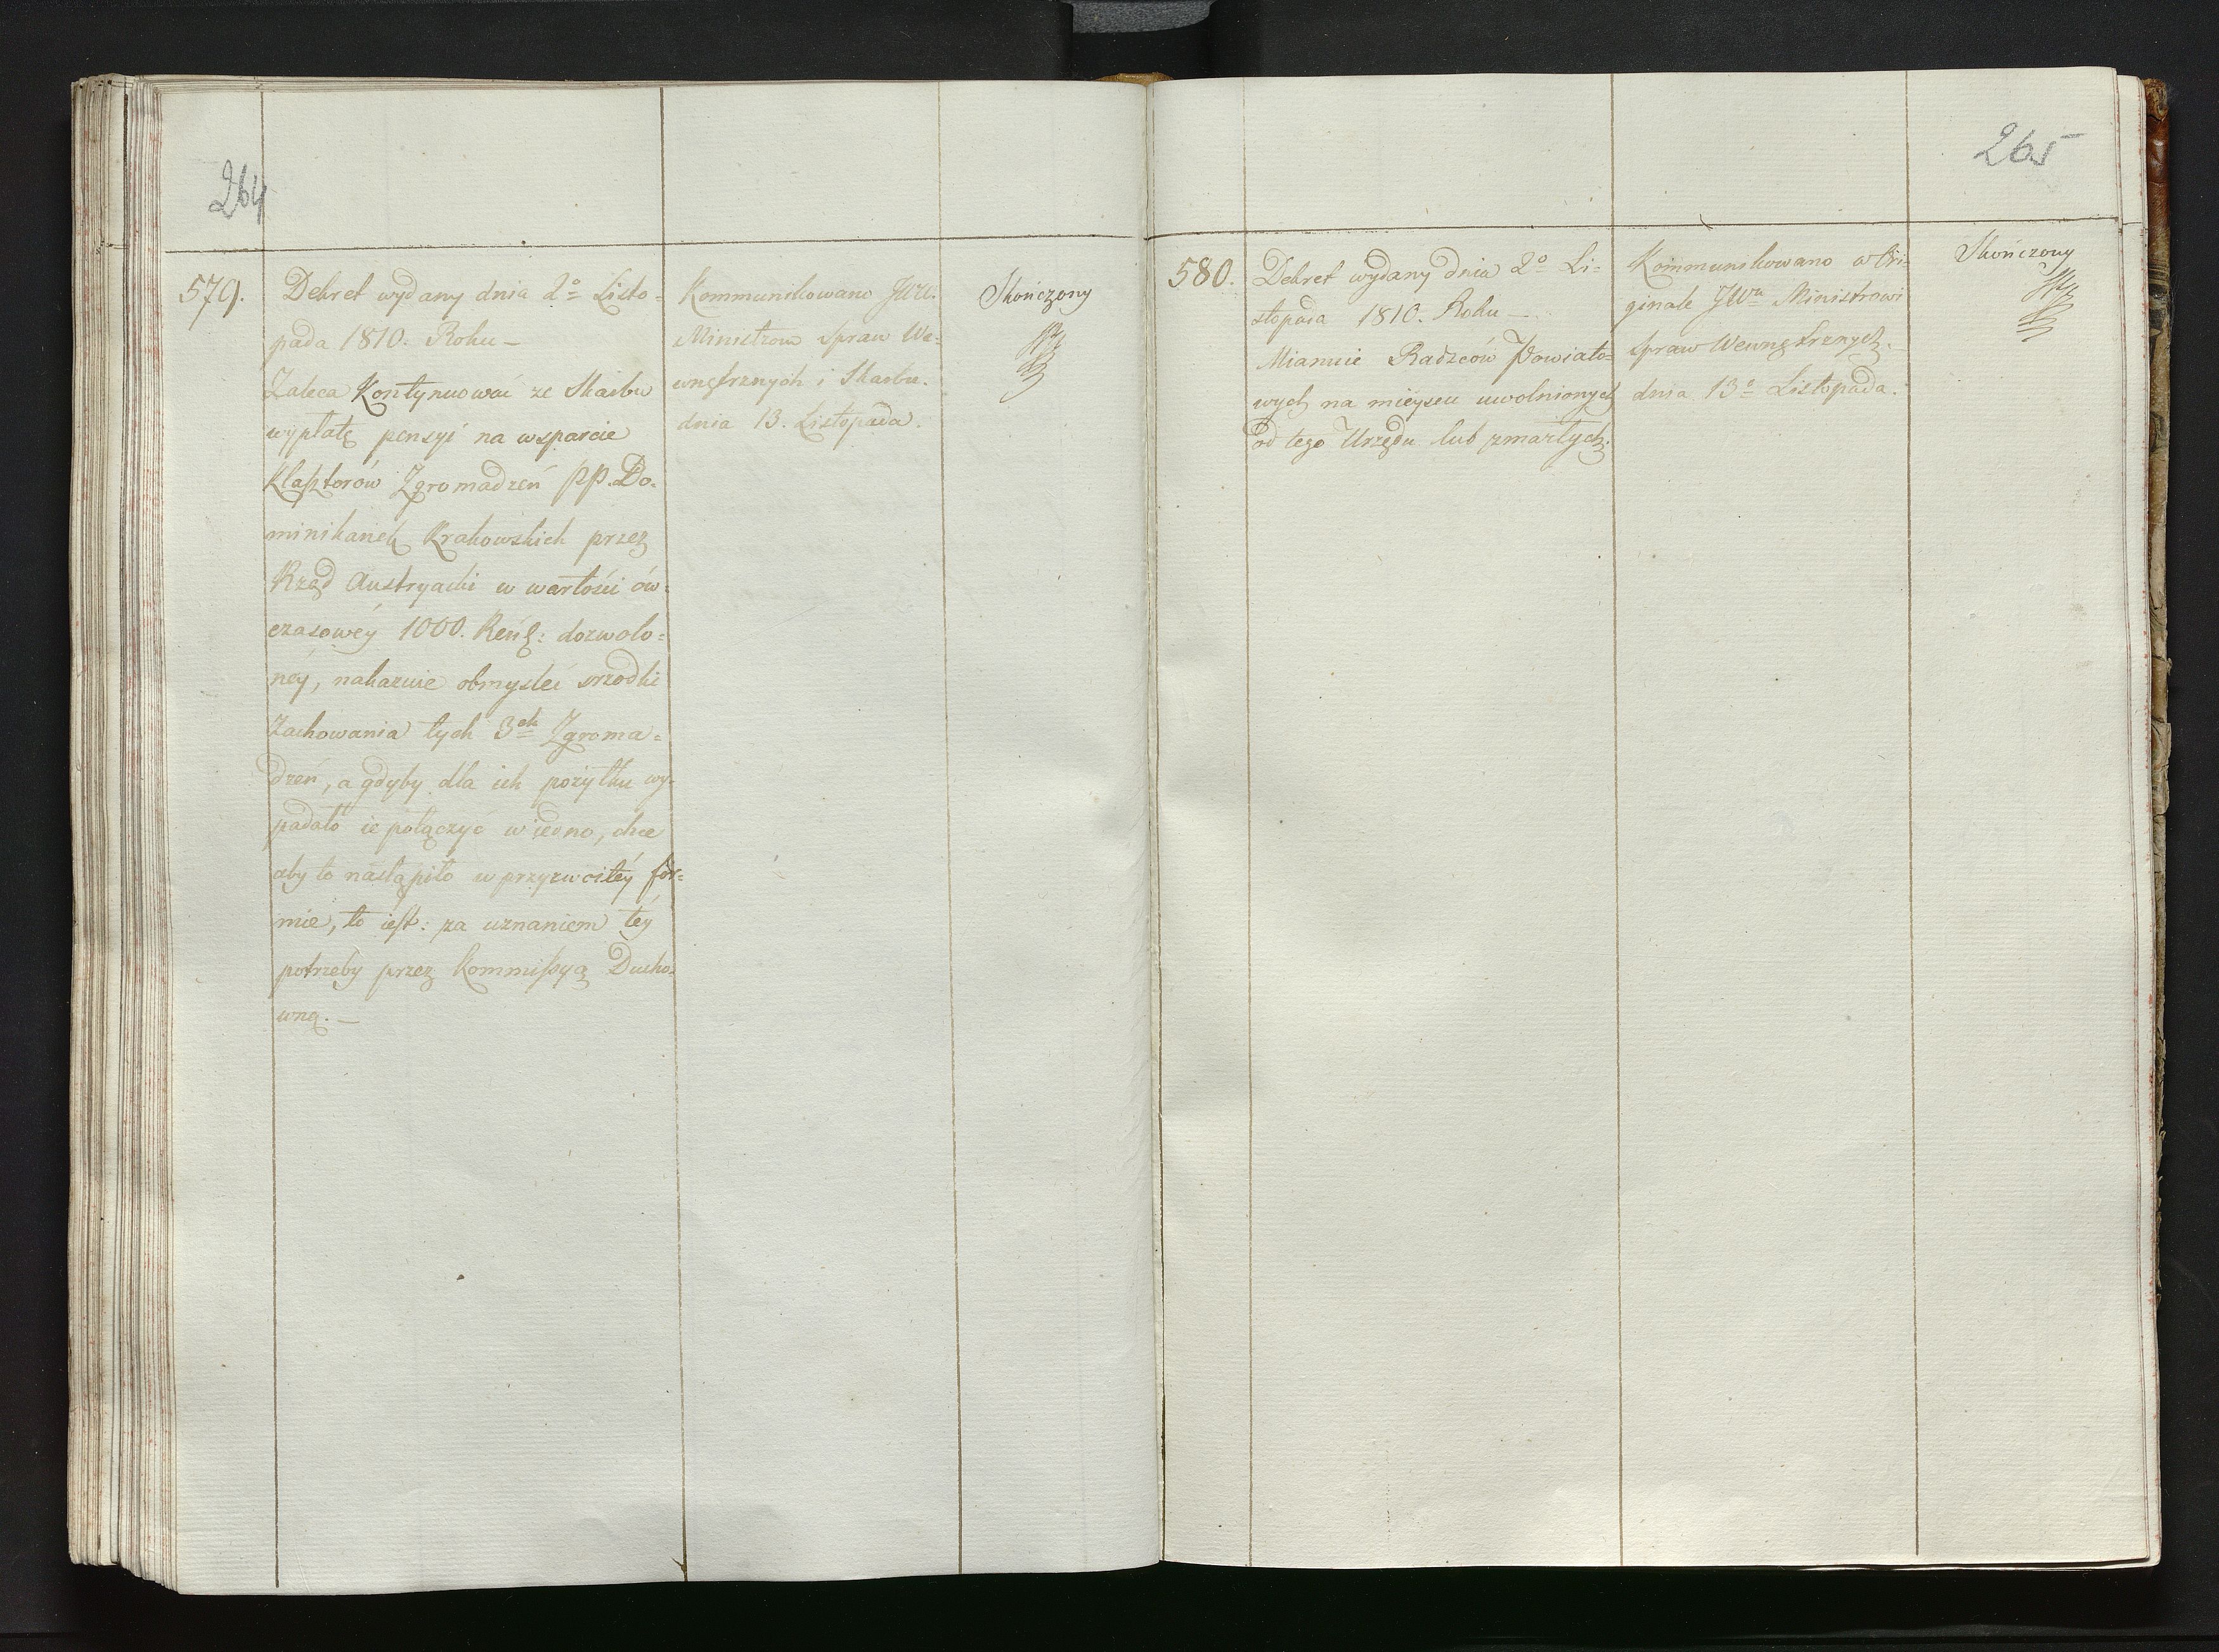 264
579.
Dekret wydany dnia 2º Listo=
pada 1810. Roku —
Zaleca Kontynuować ze Skarbu
wypłatę pensyi na wsparcie
Klasztorów Zgromadzeń PP. Do=
minikanek Krakowskich przez
Rząd Austryacki w wartości ów=
czasowéy 1000. Reńs: dozwolo=
néy, nakazuie obmyśleć srzodki
Zachowania tych 3ch Zgroma=
dzeń, a gdyby dla ich pożytku wy=
padało ie połączyć w iedno, chce
aby to nastąpiło w przyzwoitéy for=
mie, to iest: za uznaniem téy
potrzeby przez Kommissyą Ducho=
wną. —
Kommunikowano JWW.
Ministrom Spraw We=
wnętrznych i Skarbu.
dnia 13. Listopada.
Skończony
265
580.
Dekret wydany dnia 2º Li=
stopada 1810. Roku —
Mianuie Radzców Powiato=
wych na mieyscu uwolnionych
od tego Urzędu lub zmarłych.
Kommunikowano w Ori=
ginale JWu Ministrowi
Spraw Wewnętrznych.
dnia 13º Listopada.
Skończony